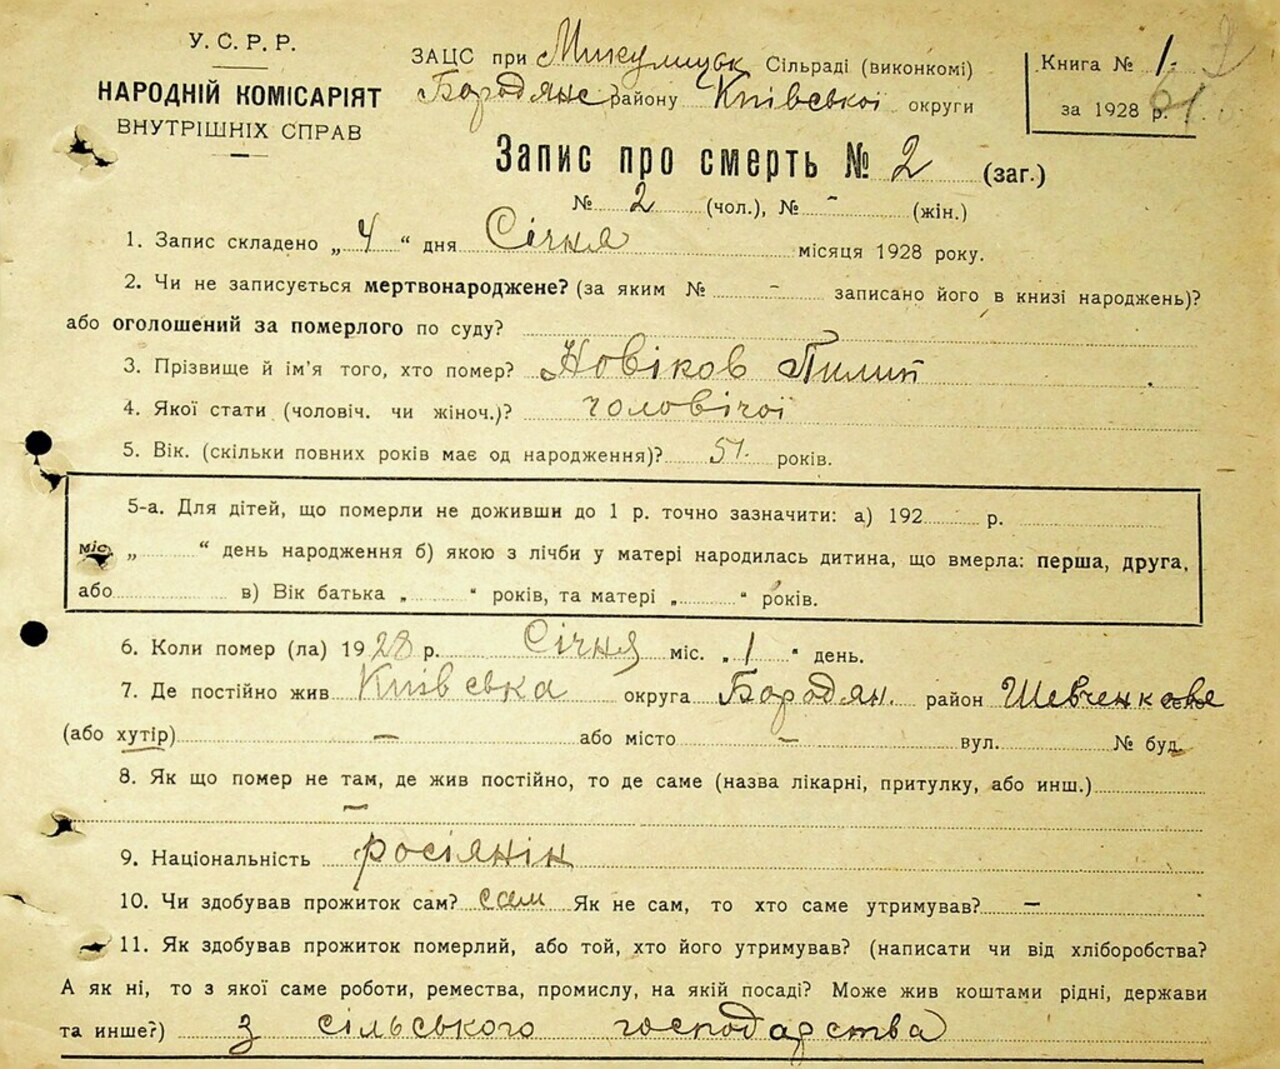 У. С. Р. Р.
НАРОДНІЙ КОМІСАРІЯТ
ВНУТРІШНІХ СПРАВ
ЗАЦС при Микулицьк Сільраді (виконкомі)
Бородянс району Київської округи
Книга № 1
за 1928 р.
Запис про смерть № 2 (заг.)
№ 2 (чол.), № - (жін.)
1. Запис складено „ 4 “ дня Січня місяця 1928 року.
2. Чи не записується мертвонароджене? (за яким № - записано його в книзі народжень)?
або оголошений за померлого по суду?
3. Прізвище й ім'я того, хто помер? Новіков Пилип
4. Якої стати (чоловіч. чи жіноч.)? чоловічої
5. Вік. (скільки повних років має од народження)? 51. років.
5-а. Для дітей, що померли не доживши до 1 р. точно зазначити: а) 192 р.
міс. „ “ день народження б) якою з лічби у матері народилась дитина, що вмерла: перша, друга,
або в) Вік батька „ “ років, та матері „ “ років.
6. Коли помер (ла) 1928 р. Січня міс. „ 1 “ день.
7. Де постійно жив Київська округа Бородян. район Шевченкове
(або хутір) — або місто — вул. № буд.
8. Як що помер не там, де жив постійно, то де саме (назва лікарні, притулку, або инш.)
—
9. Національність росіянін
10. Чи здобував прожиток сам? сам Як не сам, то хто саме утримував? —
11. Як здобував прожиток померлий, або той, хто його утримував? (написати чи від хліборобства?
А як ні, то з якої саме роботи, ремества, промислу, на якій посаді? Може жив коштами рідні, держави
та инше?) з сільського господарства